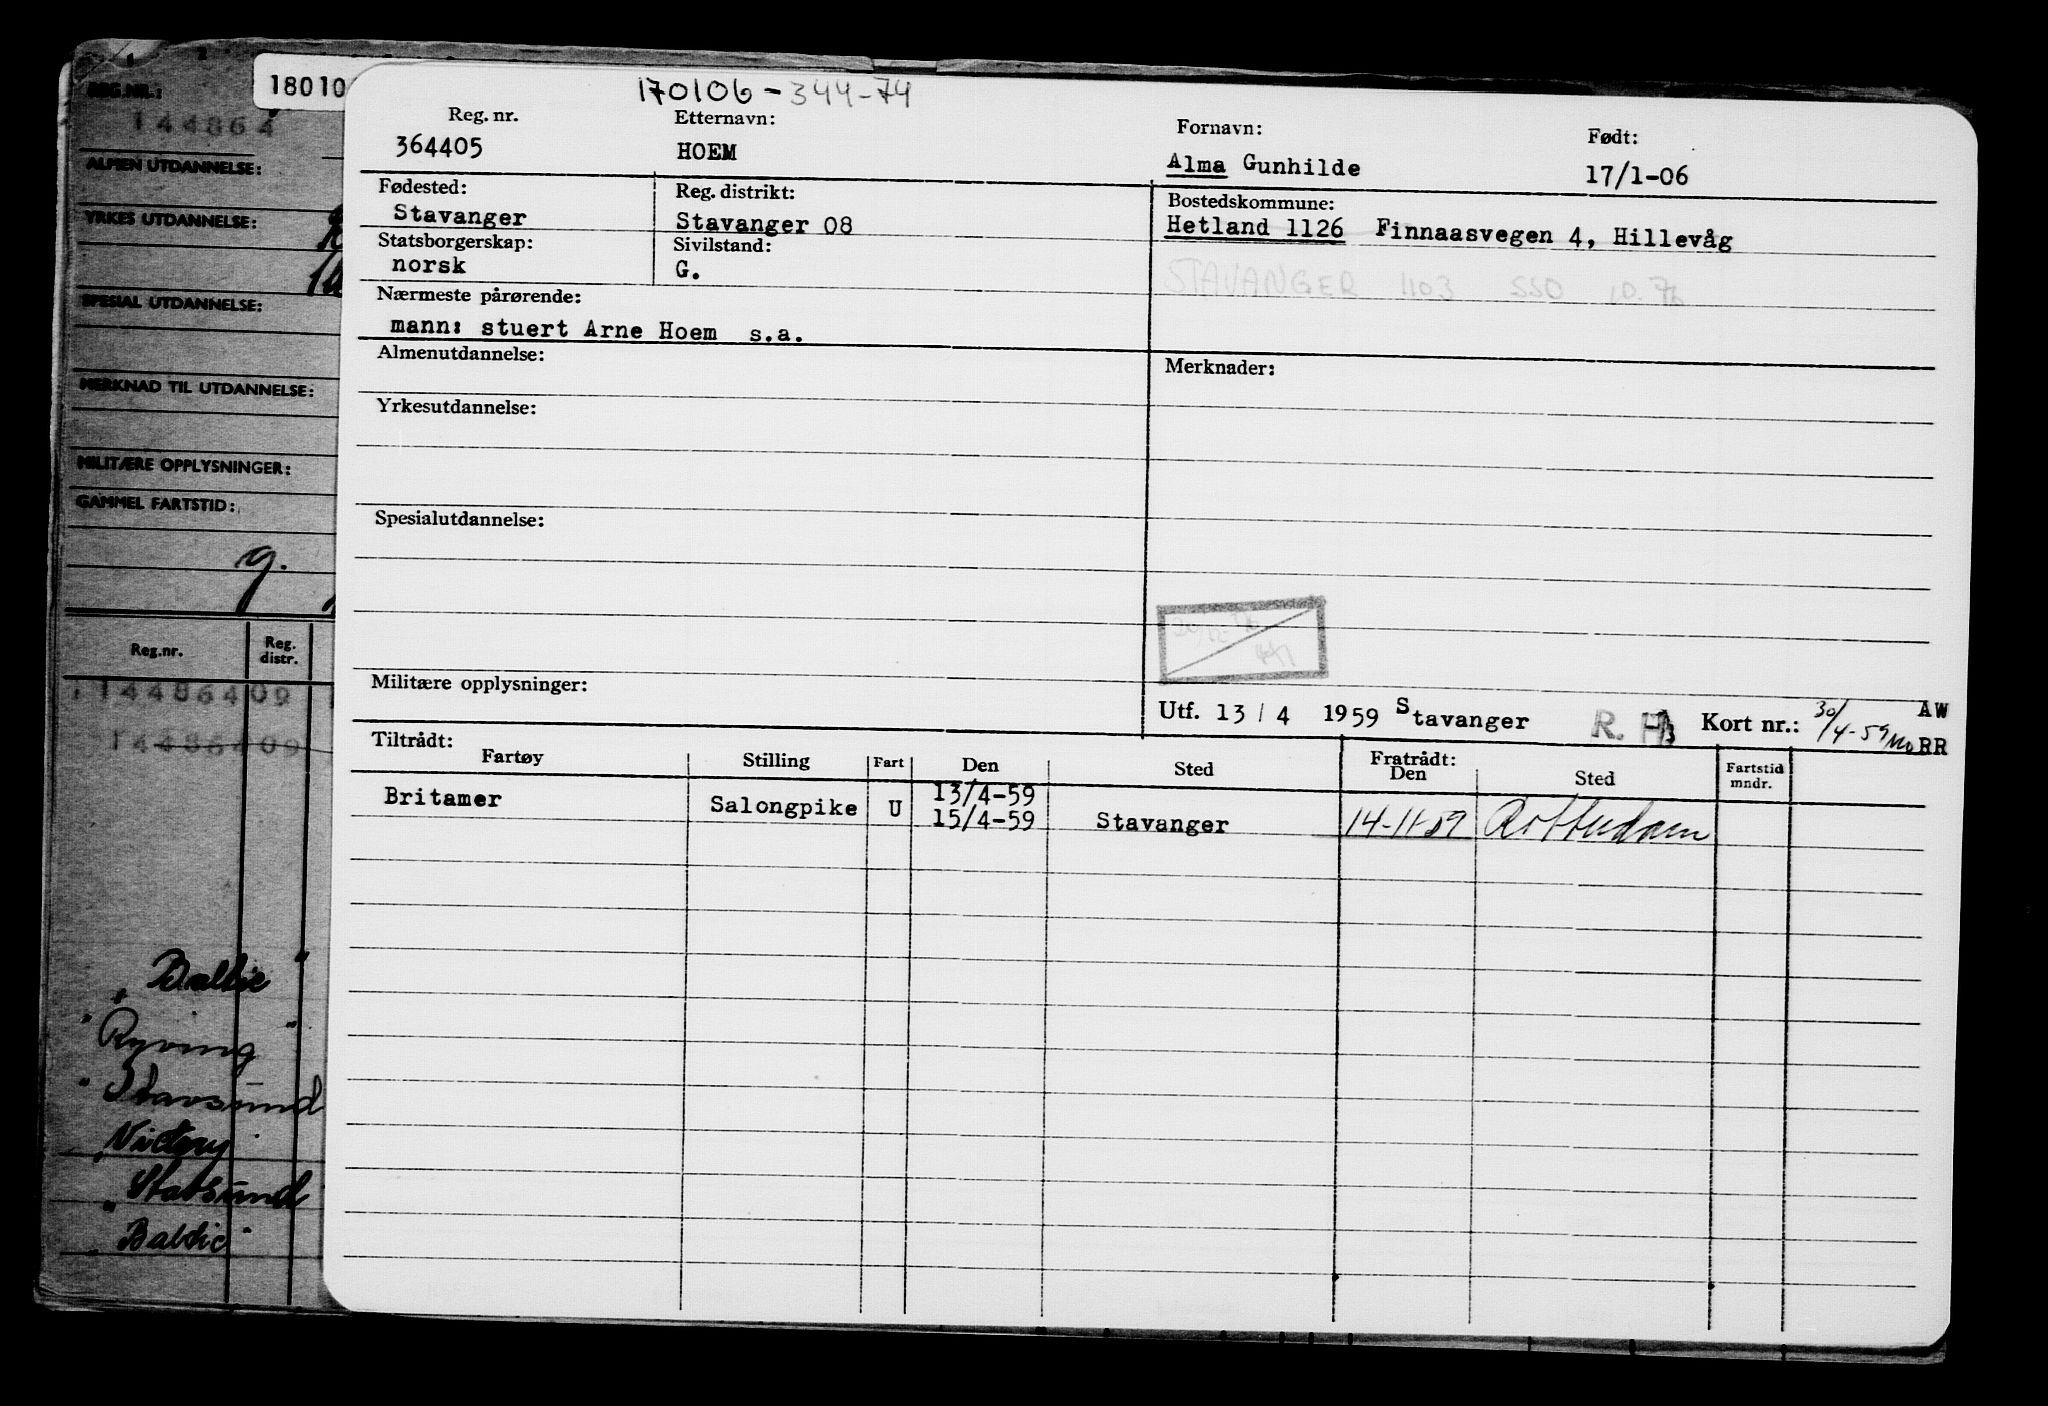 REG.NR.:
144864
ALMEN UTDANNELSE:
YRKES UTDANNELSE:
SPESIAL UTDANNELSE:
MERKNAD TIL UTDANNELSE:
MILITÆRE OPPLYSNINGER:
GAMMEL FARTSTID:
g.
Reg.nr. Reg. distr.
144864 09
144864 09
" Baltic "
" Ryving "
" Stavsund
Victory
" Stavsund
" Baltic "
18010
170106-344-74
Reg. nr. Etternavn: Fornavn: Født:
364405 HOEM Alma Gunhilde 17/1-06
Fødested: Reg. distrikt: Bostedskommune:
Stavanger Stavanger 08 Hetland 1126 Finnaasvegen 4, Hillevåg
Statsborgerskap: Sivilstand:
norsk G.
STAVANGER 1103 SSO 10.76
Nærmeste pårørende:
mann: stuert Arne Hoem s.a.
Almenutdannelse: Merknader:
Yrkesutdannelse:
Spesialutdannelse:
Militære opplysninger:
Utf. 13/4 1959 Stavanger R. H Kort nr.: 30/4-59 AW
RR
Tiltrådt: Fratrådt:
Fartøy Stilling Fart Den Sted Den Sted Fartstid mndr.
Britamer Salongpike U 13/4-59
15/4-59 Stavanger 14-11-59 Rotterdam